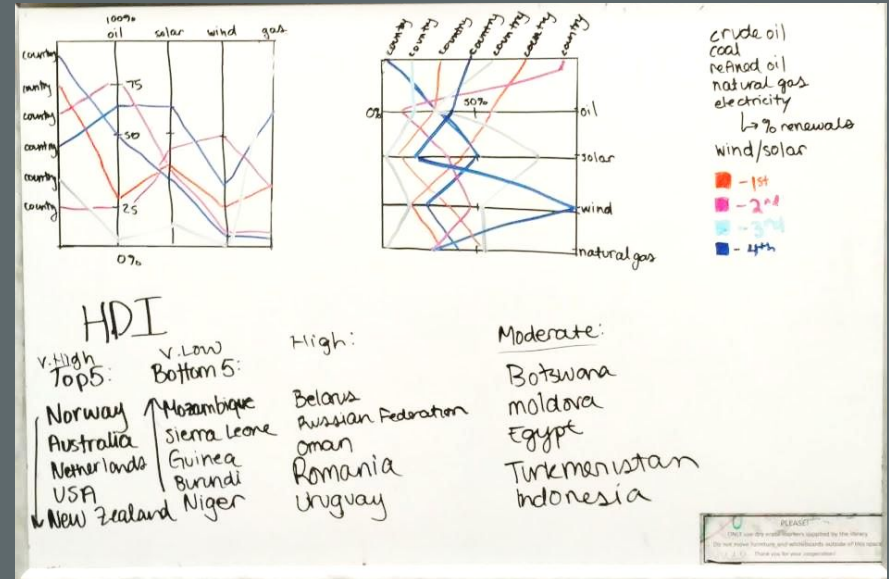 100%
oil solar wind gas
country
ountry
country
country
country
country
75
50
25
0%
country
country
country
country
country
country
country
0%
50%
oil
solar
wind
natural gas
crude oil
coal
refined oil
natural gas
electricity
↳ % renewals
wind/solar
- 1st
- 2nd
- 3rd
- 4th
HDI
V. High
Top 5:
Norway
Australia
Netherlands
USA
New Zealand
V. Low
Bottom 5:
Mozambique
Sierra Leone
Guinea
Burundi
Niger
High:
Belarus
Russian Federation
Oman
Romania
Uruguay
Moderate:
Botswana
moldova
Egypt
Turkmenistan
Indonesia
PLEASE!
ONLY use dry erase markers supplied by the library.
Do not move furniture and whiteboards outside of this space
Thank you for your cooperation!